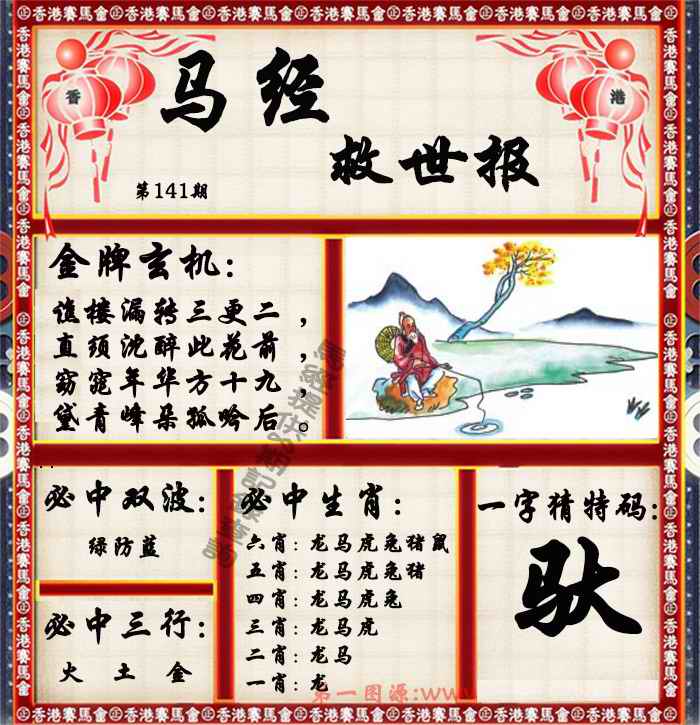 香港賽馬會
香
港
马经
救世报
第141期
金牌玄机:
谯楼漏转三更二，
直须沈醉此花前，
窈窕年华方十九，
黛青峰朵孤吟后。
必中双波:
绿防蓝
必中三行:
火 土 金
必中生肖:
六肖:龙马虎兔猪鼠
五肖:龙马虎兔猪
四肖:龙马虎兔
三肖:龙马虎
二肖:龙马
一肖:龙
一字猜特码:
驮
第一图源:ww